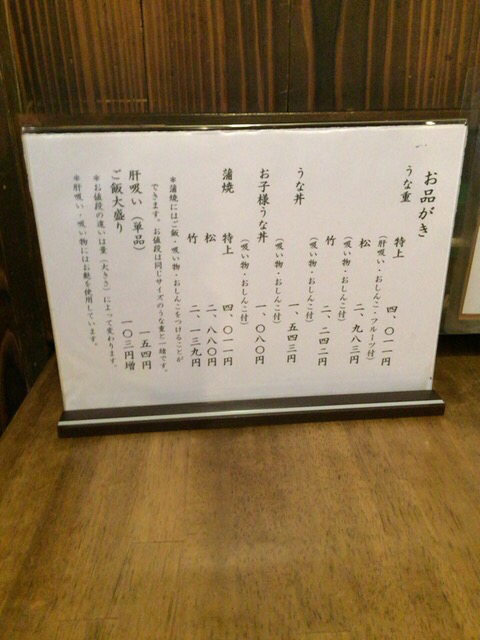 お品がき
うな重
特上 四、〇一一円
(肝吸い・おしんこ・フルーツ付)
松 二、九八三円
(吸い物・おしんこ付)
竹 二、二四二円
(吸い物・おしんこ付)
うな丼 一、五四三円
(吸い物・おしんこ付)
お子様うな丼 一、〇八〇円
(吸い物・おしんこ付)
蒲焼 特上 四、〇一一円
松 二、八八〇円
竹 二、一三九円
*蒲焼にはご飯・吸い物・おしんこをつけることが
できます。お値段は同じサイズのうな重と一緒です。
肝吸い(単品) 一五四円
ご飯大盛り 一〇三円増
*お値段の違いは量(大きさ)によって変わります。
*肝吸い・吸い物にはお麩を使用しています。